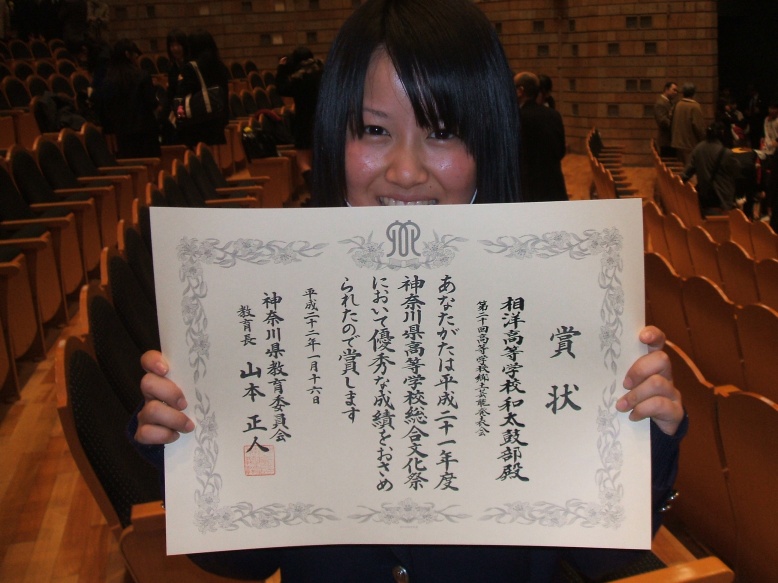 賞状
相洋高等学校和太鼓部殿
第二十回高等学校郷土芸能発表会
あなたがたは平成二十一年度
神奈川県高等学校総合文化祭
において優秀な成績をおさめ
られたので賞します
平成二十二年一月十六日
神奈川県教育委員会
教育長 山本正人